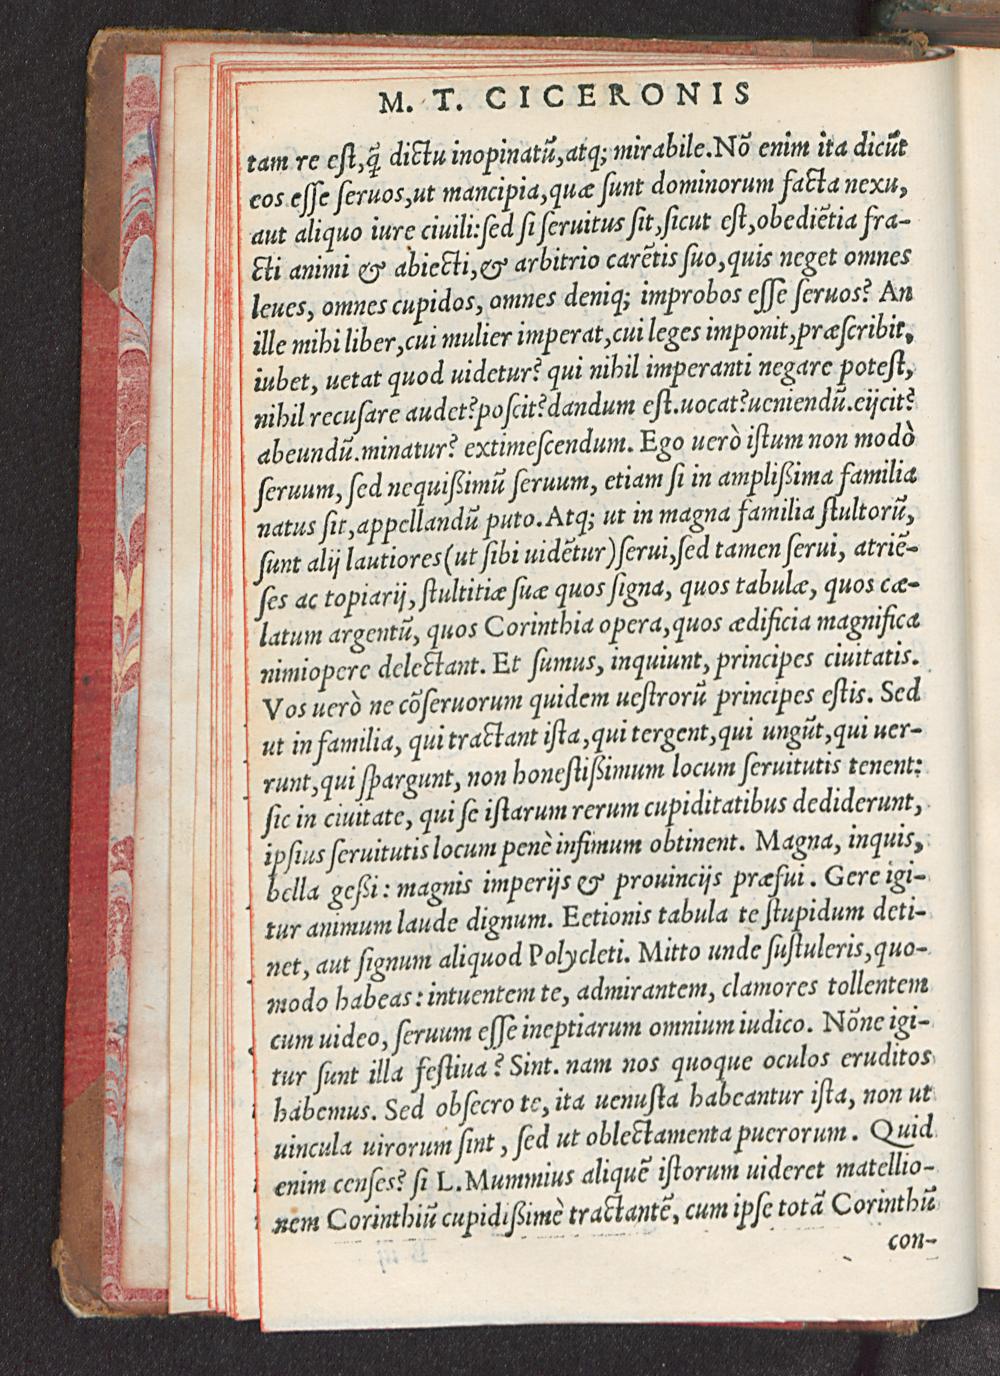 M. T. CICERONIS
tam re eſt, q̃ dictu inopinatũ, atq; mirabile. Nõ enim ita dicũt
eos eſſe ſeruos, ut mancipia, quæ ſunt dominorum facta nexu,
aut aliquo iure ciuili: ſed ſi ſeruitus ſit, ſicut eſt, obediẽtia fra-
cti animi & abiecti, & arbitrio carẽtis ſuo, quis neget omnes
leues, omnes cupidos, omnes deniq; improbos eſſe ſeruos? An
ille mihi liber, cui mulier imperat, cui leges imponit, præſcribit,
iubet, uetat quod uidetur? qui nihil imperanti negare poteſt,
nihil recuſare audet? poſcit? dandum eſt. uocat? ueniendũ. eijcit?
abeundũ. minatur? extimeſcendum. Ego uerò iſtum non modò
ſeruum, ſed nequißimũ ſeruum, etiam ſi in amplißima familia
natus ſit, appellandũ puto. Atq; ut in magna familia ſtultorũ,
ſunt alij lautiores (ut ſibi uidẽtur) ſerui, ſed tamen ſerui, atriẽ-
ſes ac topiarij, ſtultitiæ ſuæ quos ſigna, quos tabulæ, quos cæ-
latum argentũ, quos Corinthia opera, quos ædificia magnifica
nimiopere delectant. Et ſumus, inquiunt, principes ciuitatis.
Vos uerò ne cõſeruorum quidem ueſtrorũ principes eſtis. Sed
ut in familia, qui tractant iſta, qui tergent, qui ungũt, qui uer-
runt, qui ſpargunt, non honeſtißimum locum ſeruitutis tenent:
ſic in ciuitate, qui ſe iſtarum rerum cupiditatibus dediderunt,
ipſius ſeruitutis locum penè infimum obtinent. Magna, inquis,
bella geßi: magnis imperijs & prouincijs præfui. Gere igi-
tur animum laude dignum. Eetionis tabula te ſtupidum deti-
net, aut ſignum aliquod Polycleti. Mitto unde ſuſtuleris, quo-
modo habeas: intuentem te, admirantem, clamores tollentem
cum uideo, ſeruum eſſe ineptiarum omnium iudico. Nõne igi-
tur ſunt illa feſtiua? Sint. nam nos quoque oculos eruditos
habemus. Sed obſecro te, ita uenuſta habeantur iſta, non ut
uincula uirorum ſint, ſed ut oblectamenta puerorum. Quid
enim cenſes? ſi L. Mummius aliquẽ iſtorum uideret matellio-
nem Corinthiũ cupidißimè tractantẽ, cum ipſe totã Corinthũ
con-